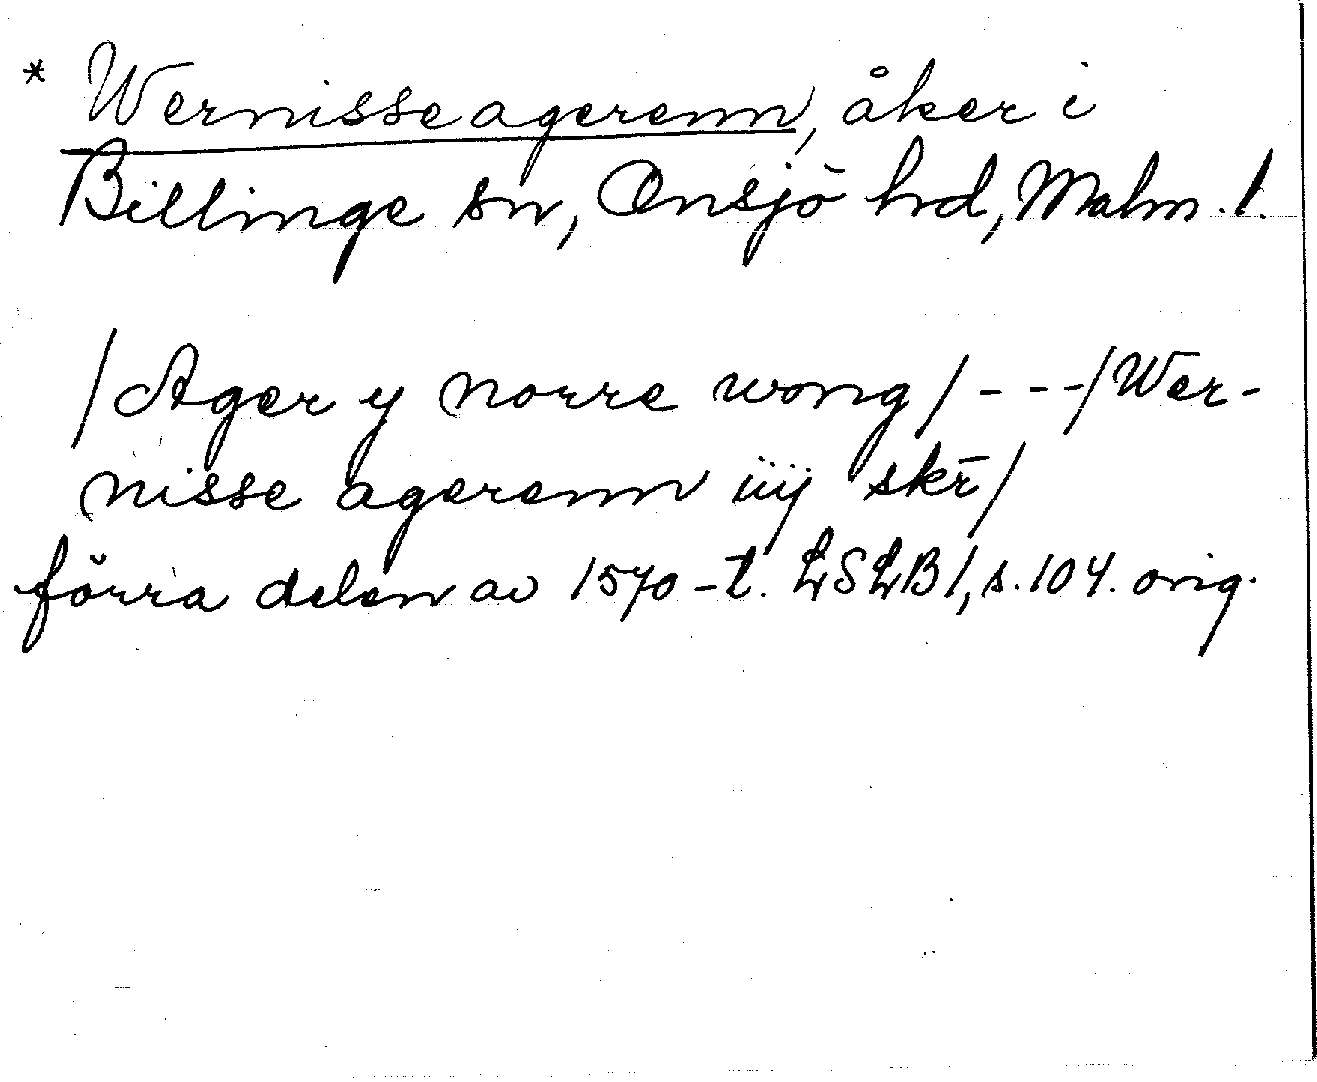 * Wernisseagerenn, åker i
Billinge sn, Onsjö hd, Malm. l.
/Ager y norre wong/ - - -/Wer-
nisse agerenn iiij skr̄/
förra delen av 1570-t. LSLB 1, s. 104. orig.